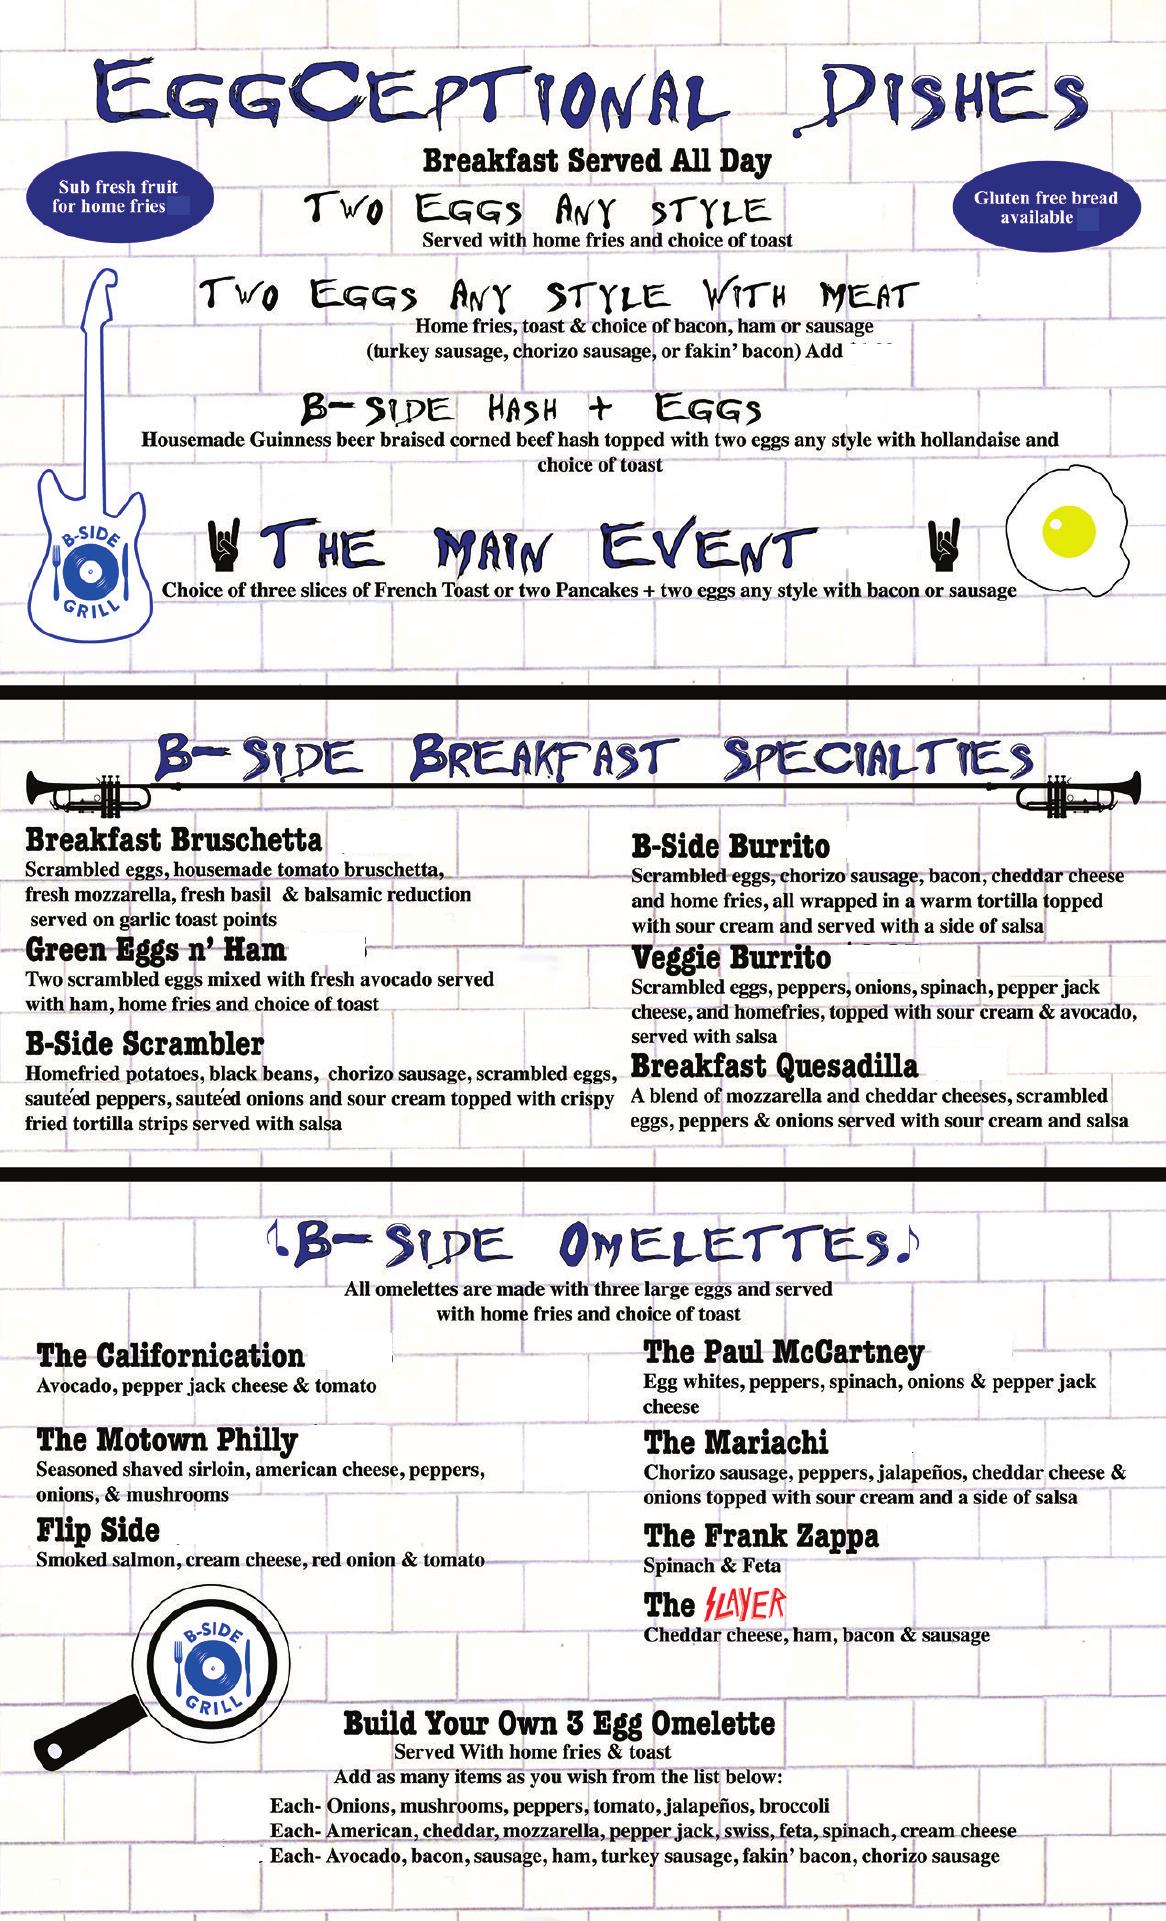 EggCeptional Dishes
Breakfast Served All Day
Sub fresh fruit
for home fries
Gluten free bread
available
Two Eggs Any Style
Served with home fries and choice of toast
Two Eggs Any Style With Meat
Home fries, toast & choice of bacon, ham or sausage
(turkey sausage, chorizo sausage, or fakin' bacon) Add
B-Side Hash + Eggs
Housemade Guinness beer braised corned beef hash topped with two eggs any style with hollandaise and
choice of toast
The Main Event
Choice of three slices of French Toast or two Pancakes + two eggs any style with bacon or sausage
B-SIDE
GRILL
B-Side Breakfast Specialties
Breakfast Bruschetta
Scrambled eggs, housemade tomato bruschetta,
fresh mozzarella, fresh basil & balsamic reduction
served on garlic toast points
Green Eggs n' Ham
Two scrambled eggs mixed with fresh avocado served
with ham, home fries and choice of toast
B-Side Scrambler
Homefried potatoes, black beans, chorizo sausage, scrambled eggs,
sauteéd peppers, sauteéd onions and sour cream topped with crispy
fried tortilla strips served with salsa
B-Side Burrito
Scrambled eggs, chorizo sausage, bacon, cheddar cheese
and home fries, all wrapped in a warm tortilla topped
with sour cream and served with a side of salsa
Veggie Burrito
Scrambled eggs, peppers, onions, spinach, pepper jack
cheese, and homefries, topped with sour cream & avocado,
served with salsa
Breakfast Quesadilla
A blend of mozzarella and cheddar cheeses, scrambled
eggs, peppers & onions served with sour cream and salsa
B-Side Omelettes
All omelettes are made with three large eggs and served
with home fries and choice of toast
The Californication
Avocado, pepper jack cheese & tomato
The Motown Philly
Seasoned shaved sirloin, american cheese, peppers,
onions, & mushrooms
Flip Side
Smoked salmon, cream cheese, red onion & tomato
The Paul McCartney
Egg whites, peppers, spinach, onions & pepper jack
cheese
The Mariachi
Chorizo sausage, peppers, jalapeños, cheddar cheese &
onions topped with sour cream and a side of salsa
The Frank Zappa
Spinach & Feta
The SLAYER
Cheddar cheese, ham, bacon & sausage
B-SIDE
GRILL
Build Your Own 3 Egg Omelette
Served With home fries & toast
Add as many items as you wish from the list below:
Each- Onions, mushrooms, peppers, tomato, jalapeños, broccoli
Each- American, cheddar, mozzarella, pepper jack, swiss, feta, spinach, cream cheese
Each- Avocado, bacon, sausage, ham, turkey sausage, fakin' bacon, chorizo sausage